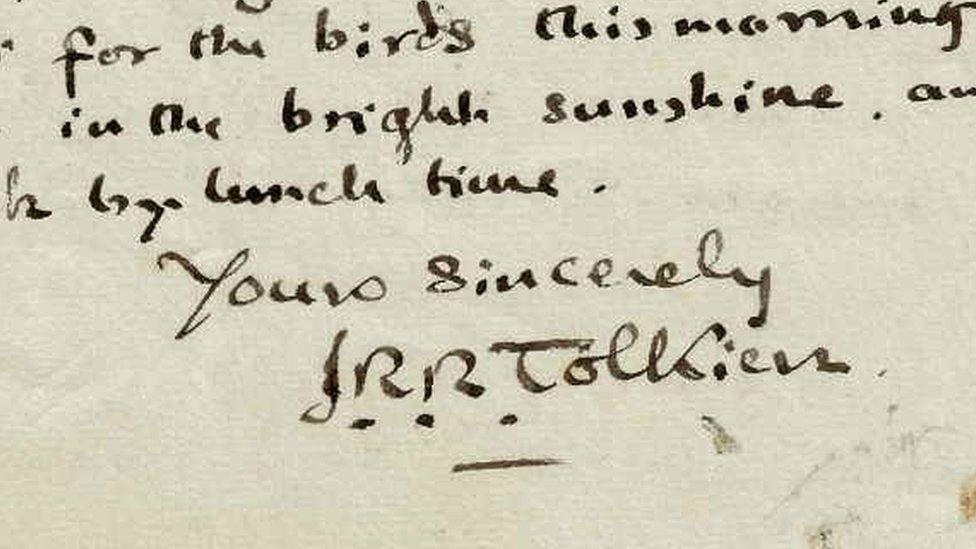 for the birds this morning
in the bright sunshine, an
k by lunch time.
Yours sincerely
J.R.R. Tolkien.